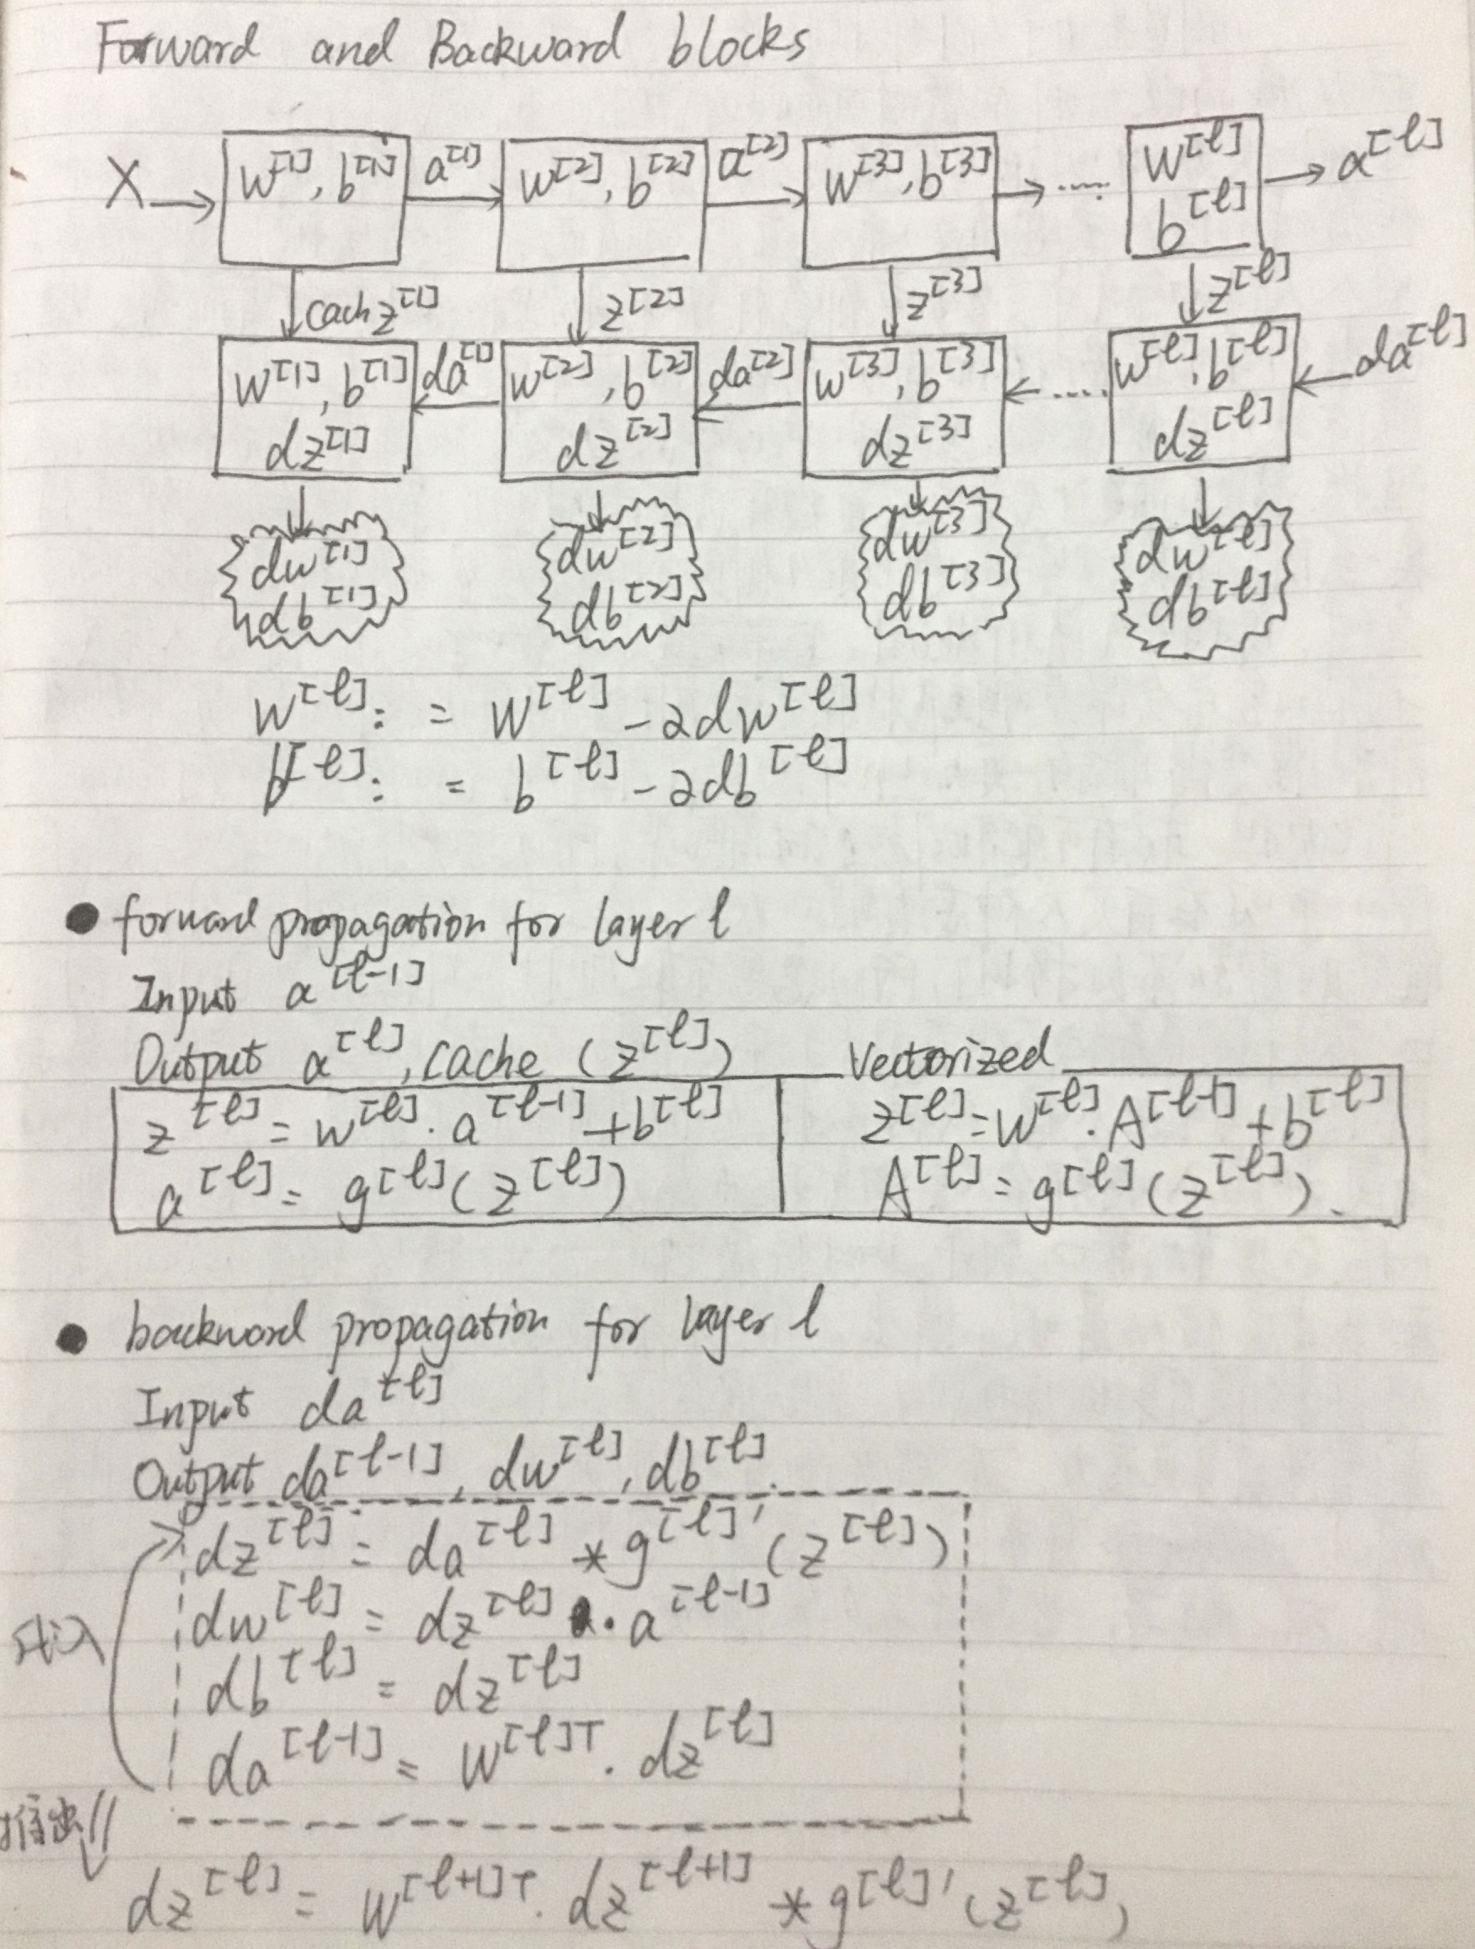 Forward and Backward blocks
X → w^[1], b^[1] a^[1] → w^[2], b^[2] a^[2] → w^[3], b^[3] → ····· w^[l] → a^[l]
b^[l]
cach z^[1] z^[2] z^[3] z^[l]
w^[1], b^[1] da^[1] w^[2], b^[2] da^[2] w^[3], b^[3] ← ····· w^[l], b^[l] ← da^[l]
dz^[1] dz^[2] dz^[3] dz^[l]
dw^[1] dw^[2] dw^[3] dw^[l]
db^[1] db^[2] db^[3] db^[l]
w^[l] := w^[l] - αdw^[l]
b^[l] := b^[l] - αdb^[l]
● forward propagation for layer l
Input a^[l-1]
Output a^[l], cache (z^[l])
Vectorized
z^[l] = w^[l] · a^[l-1] + b^[l]
a^[l] = g^[l](z^[l])
z^[l] = w^[l] · A^[l-1] + b^[l]
A^[l] = g^[l](z^[l]).
● backward propagation for layer l
Input da^[l]
Output da^[l-1], dw^[l], db^[l]
dz^[l] = da^[l] * g^[l]'(z^[l])
dw^[l] = dz^[l] · a^[l-1]
代入
db^[l] = dz^[l]
da^[l-1] = w^[l]T · dz^[l]
推出
dz^[l] = w^[l+1]T · dz^[l+1] * g^[l]'(z^[l])